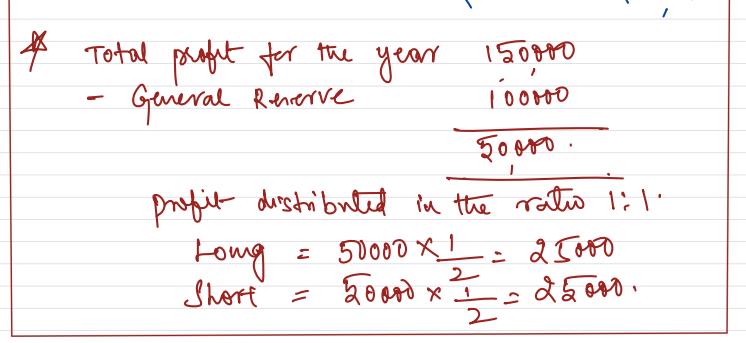 * Total profit for the year 150000
- General Reserve 100000
50000.
profit distributed in the ratio 1:1.
Long = 50000 × 1/2 = 25000
Short = 50000 × 1/2 = 25000.